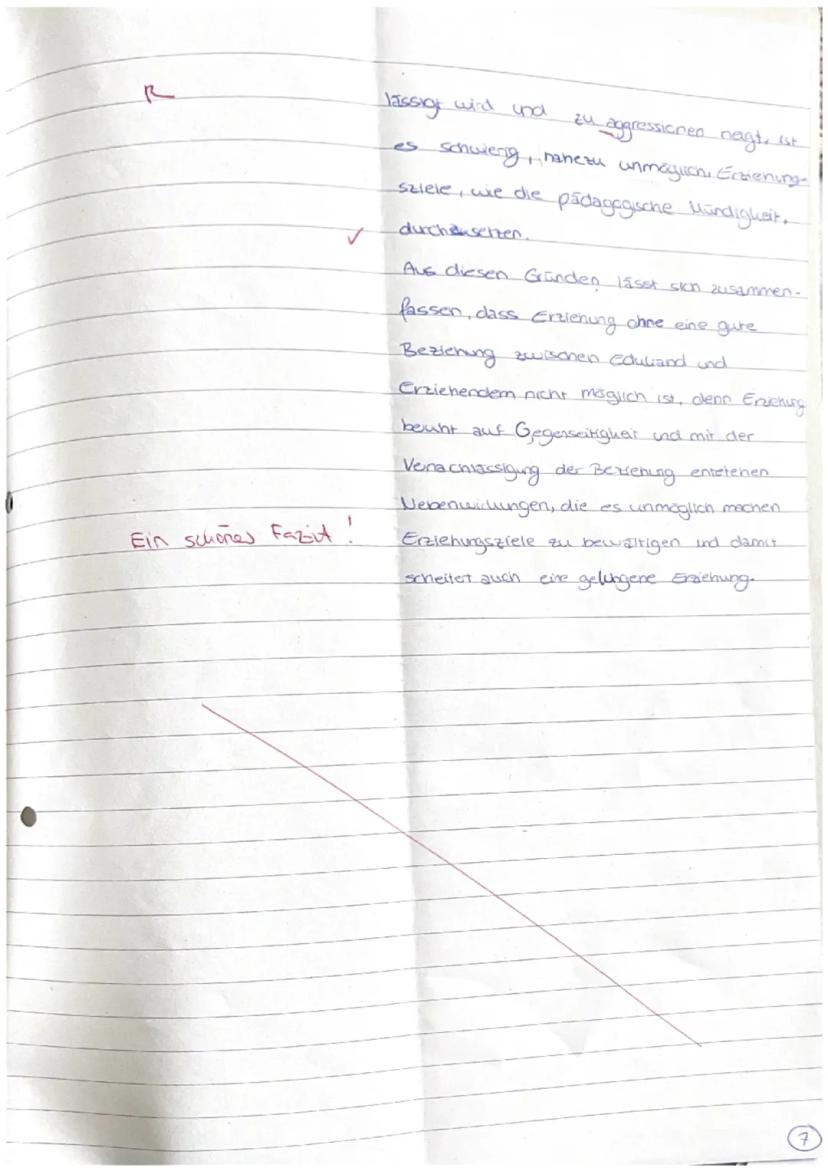 R
lässigt wird und zu aggressionen neigt, ist
es schwierig, nahezu unmöglich, Erziehung-
sziele, wie die pädagogische Mündigkeit,
✓ durchzusetzen.
Aus diesen Gründen lässt sich zusammen-
fassen, dass Erziehung ohne eine gute
Beziehung zwischen Edukand und
Erziehendem nicht möglich ist, denn Erziehung
beruht auf Gegenseitigkeit und mit der
Vernachlässigung der Beziehung entstehen
Nebenwirkungen, die es unmöglich machen
Ein schönes Fazit!
Erziehungsziele zu bewältigen und damit
scheitet auch eine gelungene Erziehung.
7